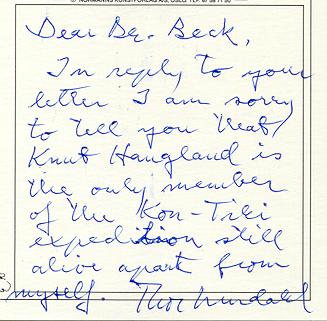 © NORMANNS KUNSTFORLAG A/S, OSLO. TEL.
Dear Dr. Beck,
In reply to your
letter I am sorry
to tell you that
Knut Haugland is
the only member
of the Kon-Tiki
expedition still
alive apart from
myself. Thor Heyerdahl